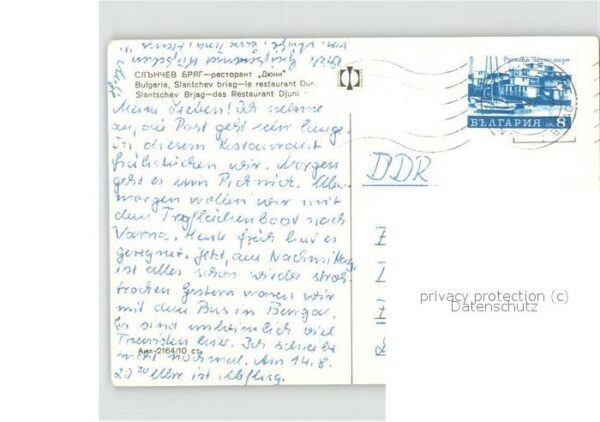 СЛЪНЧЕВ БРЯГ—ресторант „Дюни"
Bulgaria, Slantchev briag—le restaurant Dun
Slantschev Brjag—das Restaurant Djuni
Meine Lieben! Ich nehme
an, die Post geht sehr lange.
In diesem Restaurant
frühstücken wir. Morgen
geht es zum Picknick. Über-
morgen wollen wir mit
dem Tragflächenboot nach
Varna. Heute früh hat es
geregnet. Jetzt, am Nachmittag
ist alles schon wieder stroh
trocken. Gestern waren wir
mit dem Bus in
Es sind unheimlich viel
Touristen hier. Ich schreibe
nicht nochmal. Am 14.8.
20 30 Uhr ist Abflug.
Акл-2164/10 ст.
Русалка Черно море
БЪЛГАРИЯ 8
DDR
privacy protection (c)
Datenschutz